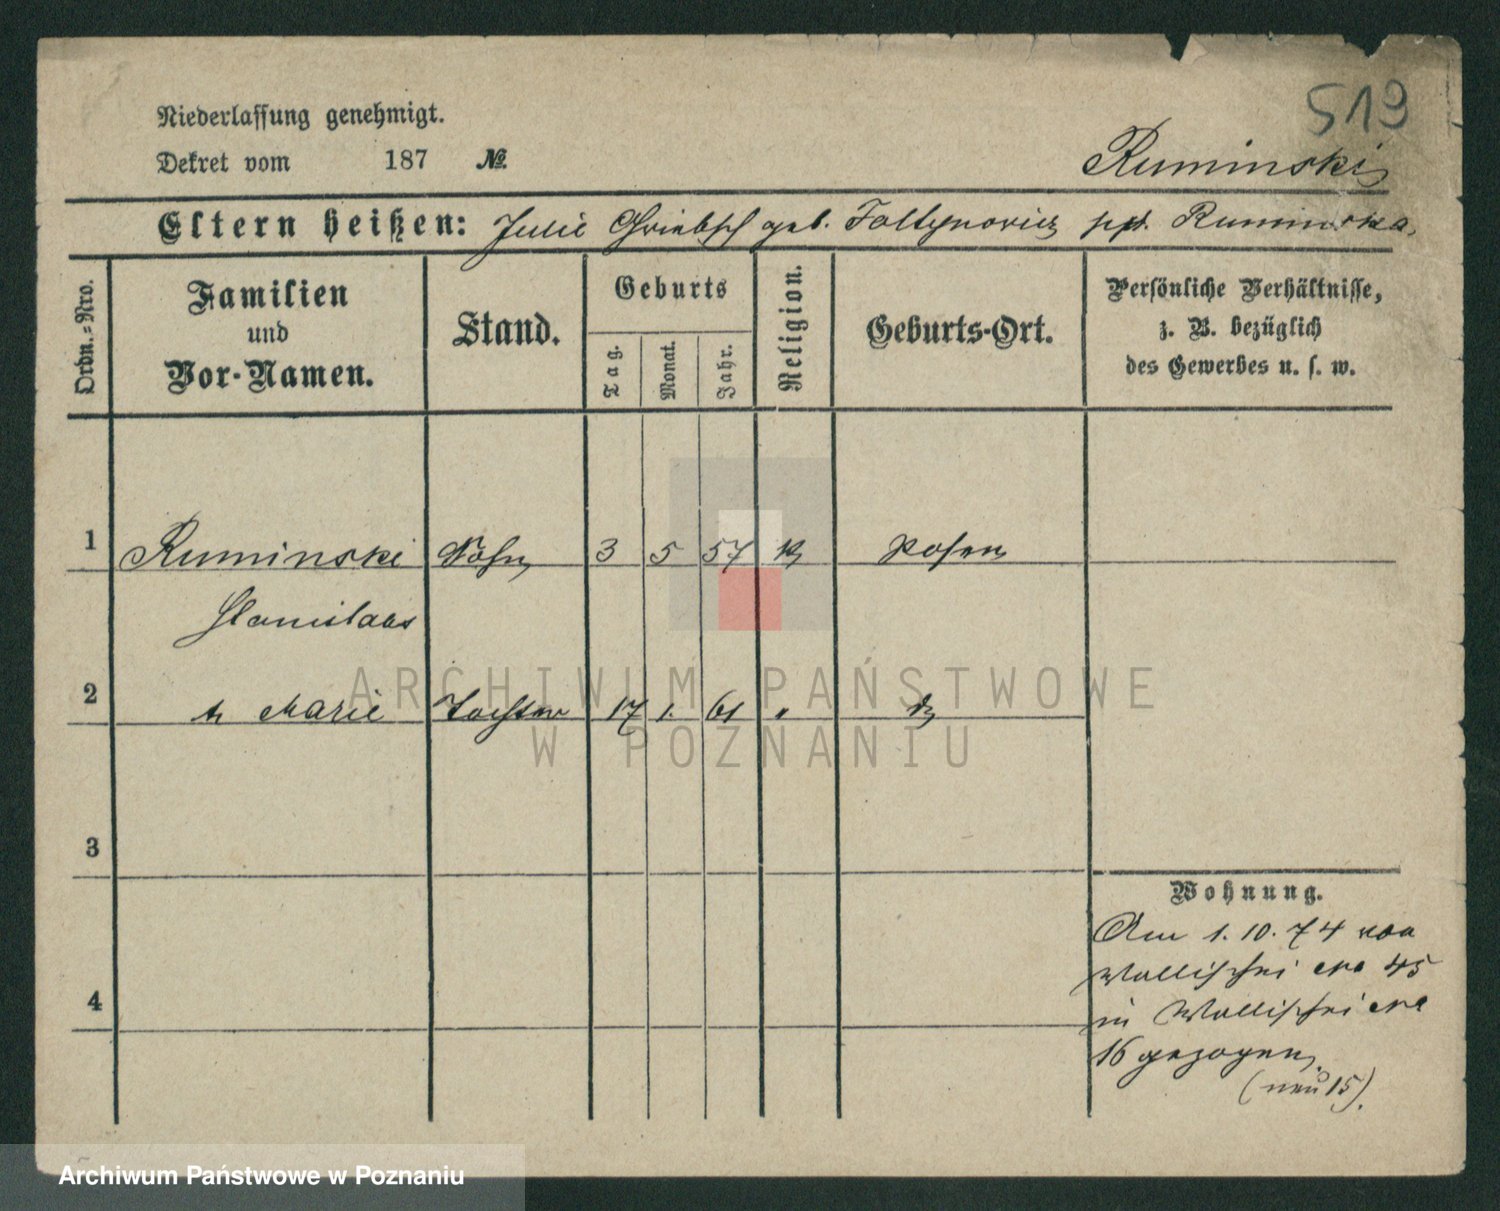 519
Niederlassung genehmigt.
Dekret vom 187 №
Ruminski
Eltern heißen: Julie Griebsch geb. Foltynovicz Ruminska.
Ordn.-Nro.
Familien
und
Vor-Namen.
Stand.
Geburts
Tag.
Monat.
Jahr.
Religion.
Geburts-Ort.
Persönliche Verhältnisse,
z. B. bezüglich
des Gewerbes u. s. w.
1 Ruminski Sohn 3 5 57 k Posen
Stanislaus
2 Marie Tochter 17 1. 61 " do
3
4
Wohnung.
Am 1. 10. 74 von
Wallischei No 45
in Wallischei No
16 gezogen.
(neu 15).
ARCHIWUM PAŃSTWOWE
W POZNANIU
Archiwum Państwowe w Poznaniu